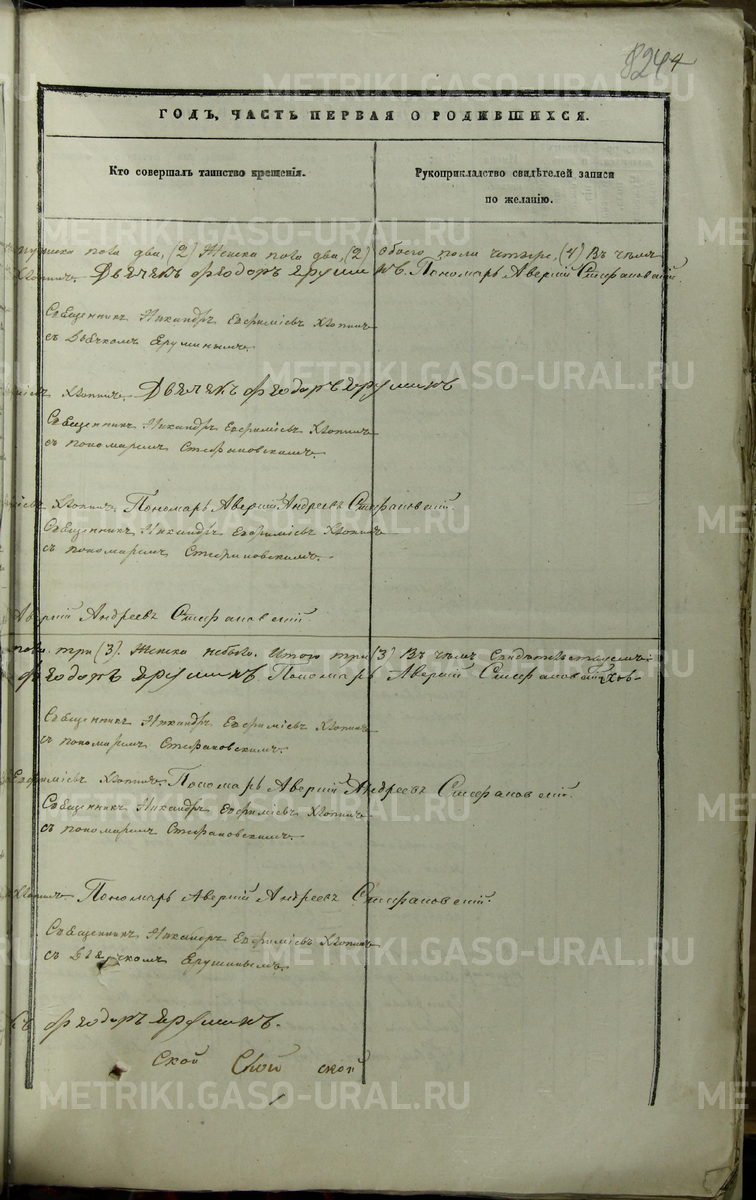 824
ГОДЪ, ЧАСТЬ ПЕРВАЯ О РОДИВШИХСЯ.
Кто совершалъ таинство крещенія.
Рукоприкладство свидѣтелей записи
по желанію.
пола два, (2) Женска пола два, (2) обоего пола четыре, (4) Въ чемъ
Хлопинъ. Дьячекъ Ѳеодоръ Ерушинъ. Пономарь Аверкій Стефановскій
Священникъ Никандръ Евфиміевъ Хлопинъ
съ Дьячкомъ Ерушинымъ.
Хлопинъ. Дьячекъ Ѳеодоръ Ерушинъ
Священникъ Никандръ Евфиміевъ Хлопинъ
съ пономаремъ Стефановскимъ.
Хлопинъ. Пономарь Аверкій Андреевъ Стефановскій.
Священникъ Никандръ Евфиміевъ Хлопинъ
съ пономаремъ Стефановскимъ.
Аверкій Андреевъ Стефановскій.
пола три (3). Женска небыло. Итого три (3) Въ чемъ Свидѣтельствуемъ:
Ѳеодоръ Ерушинъ Пономарь Аверкій Стефановскій
Священникъ Никандръ Евфиміевъ Хлопинъ
съ пономаремъ Стефановскимъ.
Евфиміевъ Хлопинъ. Пономарь Аверкій Андреевъ Стефановскій.
Священникъ Никандръ Евфиміевъ Хлопинъ
съ пономаремъ Стефановскимъ.
Хлопинъ Пономарь Аверкій Андреевъ Стефановскій.
Священникъ Никандръ Евфиміевъ Хлопинъ
съ Дьячкомъ Ерушинымъ.
Ѳеодоръ Ерушинъ.
ской ской ской
METRIKI.GASO-URAL.RU